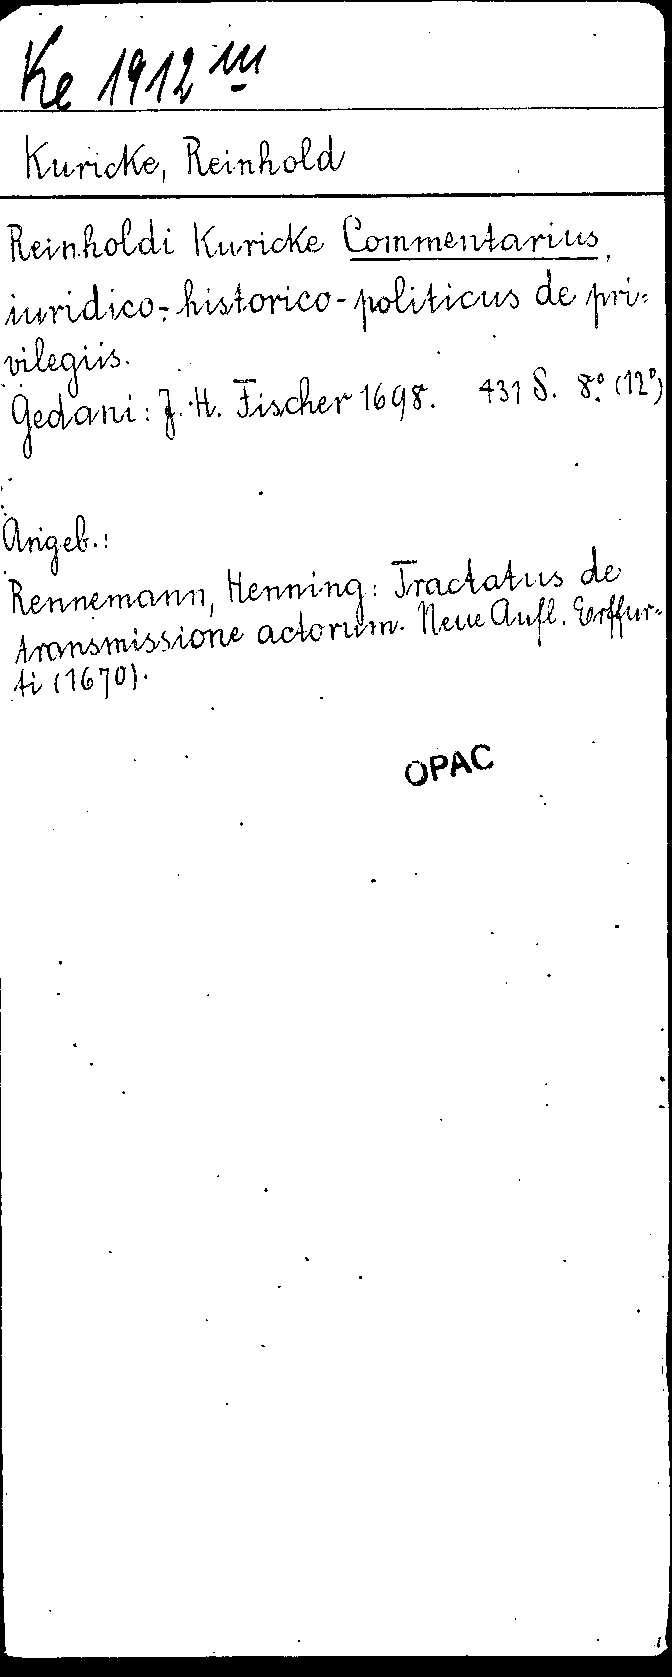 Ke 1912 m
Kuricke, Reinhold
Reinholdi Kuricke Commentarius
iuridico-historico-politicus de pri-
vilegiis.
Gedani: J. H. Fischer 1698. 431 S. 8° (12°)
Angeb.:
Rennemann, Henning: Tractatus de
transmissione actorum. Neue Aufl. Erffur-
ti (1670).
OPAC